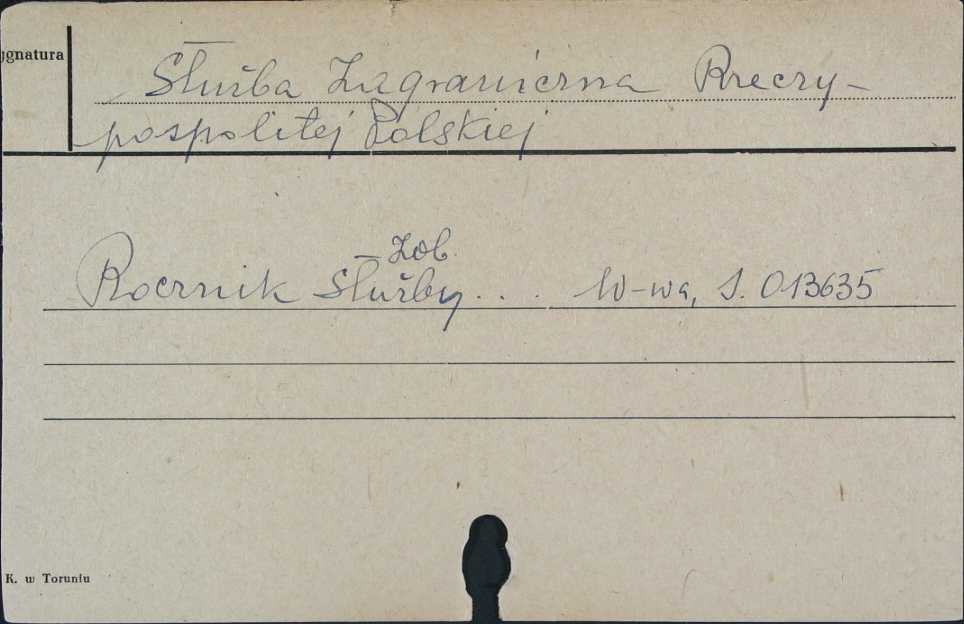 ygnatura
Służba Zagraniczna Rzeczy-
pospolitej Polskiej
Zob.
Rocznik Służby . . . W-wa, S. 013635
K. w Toruniu